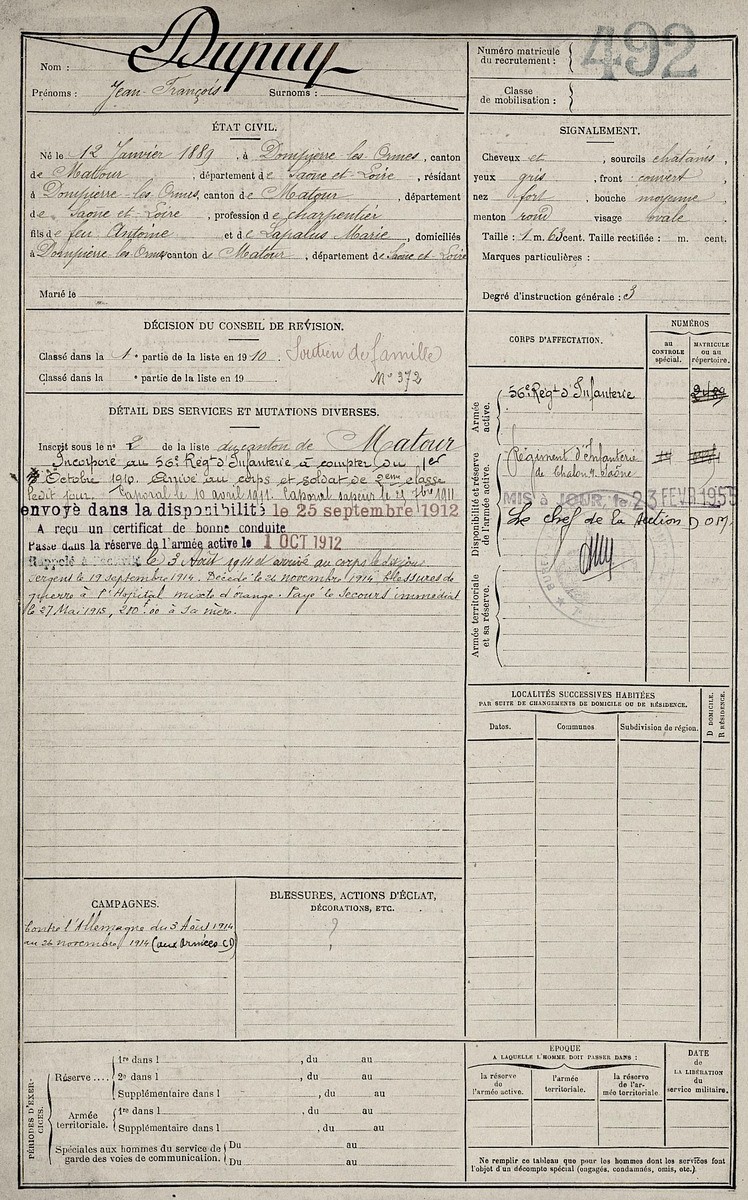 Dupuy
Nom :
Prénoms : Jean-François Surnoms :
Numéro matricule du recrutement : 492
Classe de mobilisation :
ÉTAT CIVIL.
Né le 12 Janvier 1889, à Dompierre-les-Ormes, canton
de Matour, département de Saône-et-Loire, résidant
à Dompierre-les-Ormes, canton de Matour, département
de Saône-et-Loire, profession de charpentier
fils de feu Antoine et de Lapalus Marie, domiciliés
à Dompierre les Ormes canton de Matour, département de Saône-et-Loire
Marié le
SIGNALEMENT.
Cheveux et, sourcils chatains,
yeux gris, front couvert,
nez fort, bouche moyenne,
menton rond visage ovale
Taille : 1 m. 63 cent. Taille rectifiée : m. cent.
Marques particulières :
Degré d'instruction générale : 3
DÉCISION DU CONSEIL DE REVISION.
Classé dans la 1e partie de la liste en 1910. Soutien de famille
Classé dans la e partie de la liste en 19 No 372
DÉTAIL DES SERVICES ET MUTATIONS DIVERSES.
Inscrit sous le no 2 de la liste du canton de Matour
Incorporé au 56e Régt d'Infanterie à compter du 1er
Octobre 1910. Arrivé au corps et soldat de 2eme classe
ledit jour. Caporal le 10 avril 1911. Caporal sapeur le 7bre 1911
envoyé dans la disponibilité le 25 septembre 1912
A reçu un certificat de bonne conduite
Passé dans la réserve de l'armée active le 1 OCT 1912
Rappelé à l'activité le 3 Août 1914 et arrivé au corps le dit jour
Sergent le 19 septembre 1914. Décédé le 26 novembre 1914 blessures de
guerre à l'Hopital mixte d'orange. Payé le Secours immédiat
le 27 Mai 1915, 200.00 à Sa mère.
CORPS D'AFFECTATION.
NUMÉROS
au CONTROLE spécial.
MATRICULE ou au répertoire.
Armée active.
56e Régt d'Infanterie
Disponibilité et réserve de l'armée active.
Régiment d'Infanterie
de Chalon s. Saône
MIS à JOUR, le 23 FEVR 1955
Le chef de la Section D O M.
Armée territoriale et sa réserve.
LOCALITÉS SUCCESSIVES HABITÉES
PAR SUITE DE CHANGEMENTS DE DOMICILE OU DE RÉSIDENCE.
Dates.
Communes
Subdivision de région.
D DOMICILE.
R RÉSIDENCE.
CAMPAGNES.
Contre l'Allemagne du 3 Août 1914
au 26 novembre 1914 (aux Armées CD)
BLESSURES, ACTIONS D'ÉCLAT,
DÉCORATIONS, ETC.
?
PÉRIODES D'EXERCICES.
Réserve ....
1re dans l , du au
2e dans l , du au
Supplémentaire dans l , du au
Armée territoriale.
1re dans l , du au
Supplémentaire dans l , du au
Spéciales aux hommes du service de garde des voies de communication.
Du au
Du au
ÉPOQUE
A LAQUELLE L'HOMME DOIT PASSER DANS :
la réserve de l'armée active.
l'armée territoriale.
la réserve de l'armée territoriale
DATE de LA LIBÉRATION du service militaire.
Ne remplir ce tableau que pour les hommes dont les services font
l'objet d'un décompte spécial (engagés, condamnés, omis, etc.).